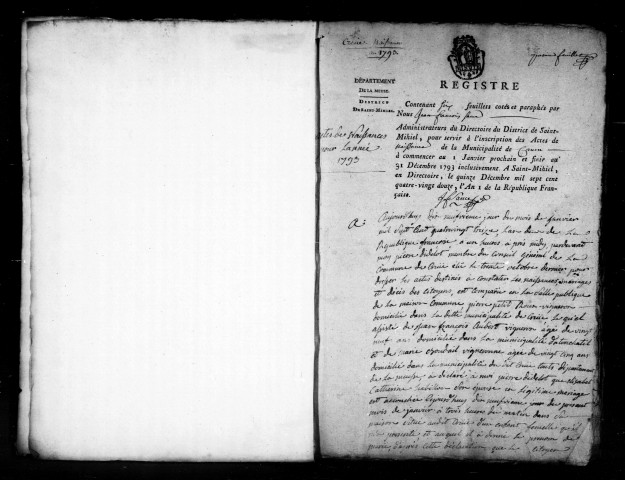 Creüe Naissance
en 1793.
premier feuillet
DÉPARTEMENT
DE LA MEUSE.
DISTRICT
DE SAINT-MIHIEL.
Actes de Naissances
pour l'année
1793
REGISTRE
Contenant six feuillets cotés et paraphés par
Nous Jean françois
Administrateurs du Directoire du District de Saint-
Mihiel, pour servir à l'inscription des Actes de
Naissance de la Municipalité de Creue
à commencer au 1 Janvier prochain et finir au
31 Décembre 1793 inclusivement. A Saint-Mihiel,
en Directoire, le quinze Décembre mil sept cent
quatre-vingt douze, l'An 1 de la République Fran-
çaise.
Aujourd'hui dix neufvieme jour du mois de janvier
mil sept cent quatre vingt treize, l'an deux de la
République françoise a heures après midy pardevant
moy pierre didelot membre du conseil général de la
Commune de Creüe élu le trente octobre dernier pour
dresser les actes destinés à constater les naissances, mariages
et décès des citoyens, est comparu en la salle publique
de la maison Commune pierre petit vigneron
domicilié dans la ditte municipalité de Creüe lequel
assisté de jean françois Aubert vigneron âgé de vingt
neuf ans domicilié dans la municipalité
et de marie vigneronne agée de vingt cinq ans
domiciliée dans la municipalité du dit Creüe touts département
de la meuse, a déclaré à moi pierre didelot que
Catherine son épouse en légitime mariage
est accouchée aujourd'hui dix neufvieme jour du present
mois de janvier à trois heures du matin dans sa
maison située audit Creüe d'un enfant femelle qu'il
m'a présenté et auquel il a donné le prenom de
marie, d'après cette déclaration que le citoyen